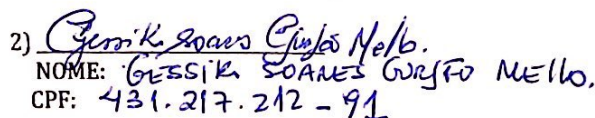 2) Gessik Soares Gurjão Mello.
NOME: GESSIK SOARES GURJÃO MELLO.
CPF: 431.217.212-91